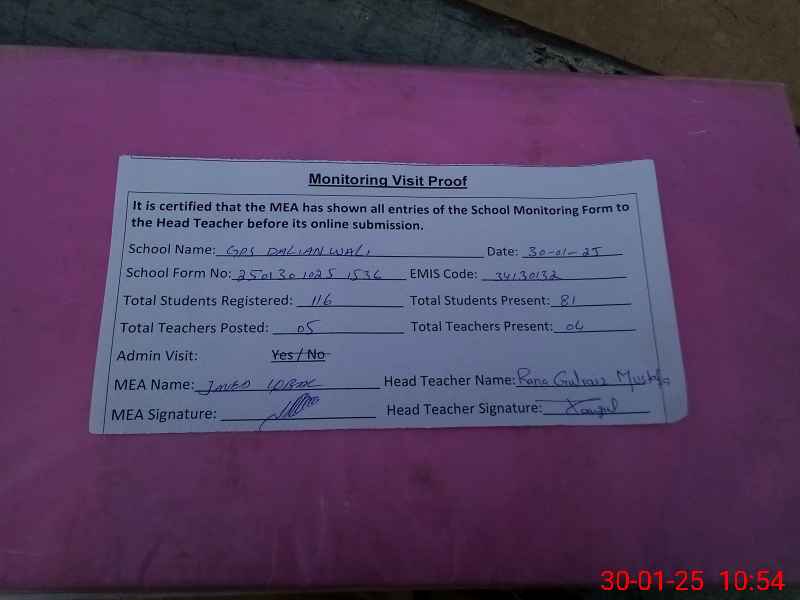 Monitoring Visit Proof
It is certified that the MEA has shown all entries of the School Monitoring Form to
the Head Teacher before its online submission.
School Name: GPS DALIAN WALI Date: 30-01-25
School Form No: 250130 1025 1536 EMIS Code: 34130132
Total Students Registered: 116 Total Students Present: 81
Total Teachers Posted: 05 Total Teachers Present: 04
Admin Visit: Yes / No
MEA Name: JAVED Head Teacher Name: Rana Gulraiz Mustafa
MEA Signature: Head Teacher Signature:
30-01-25 10:54